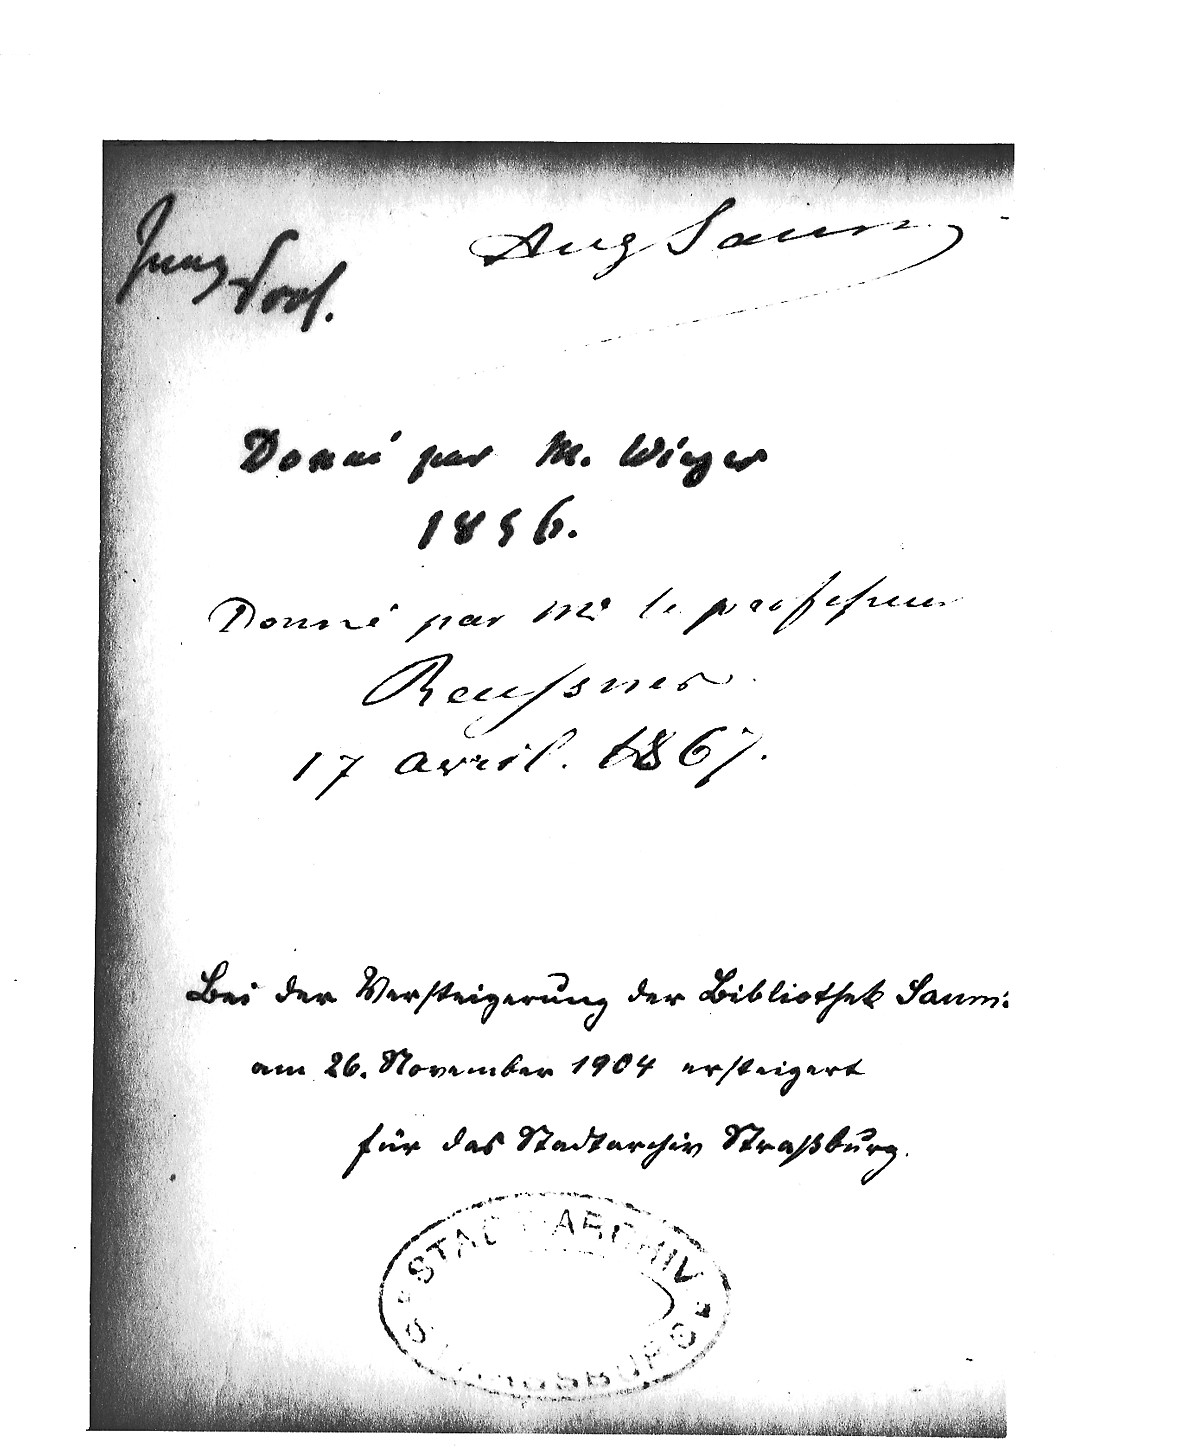 Jung Prof.
Aug Saum
Donné par M. Wieger
1856.
Donné par Mr le professeur
Reussner
17 avril. 1867.
Bei der Versteigerung der Bibliothek Saum:
am 26. November 1904 ersteigert
für das Stadtarchiv Straßburg.
STADT-ARCHIV
STRASSBURG